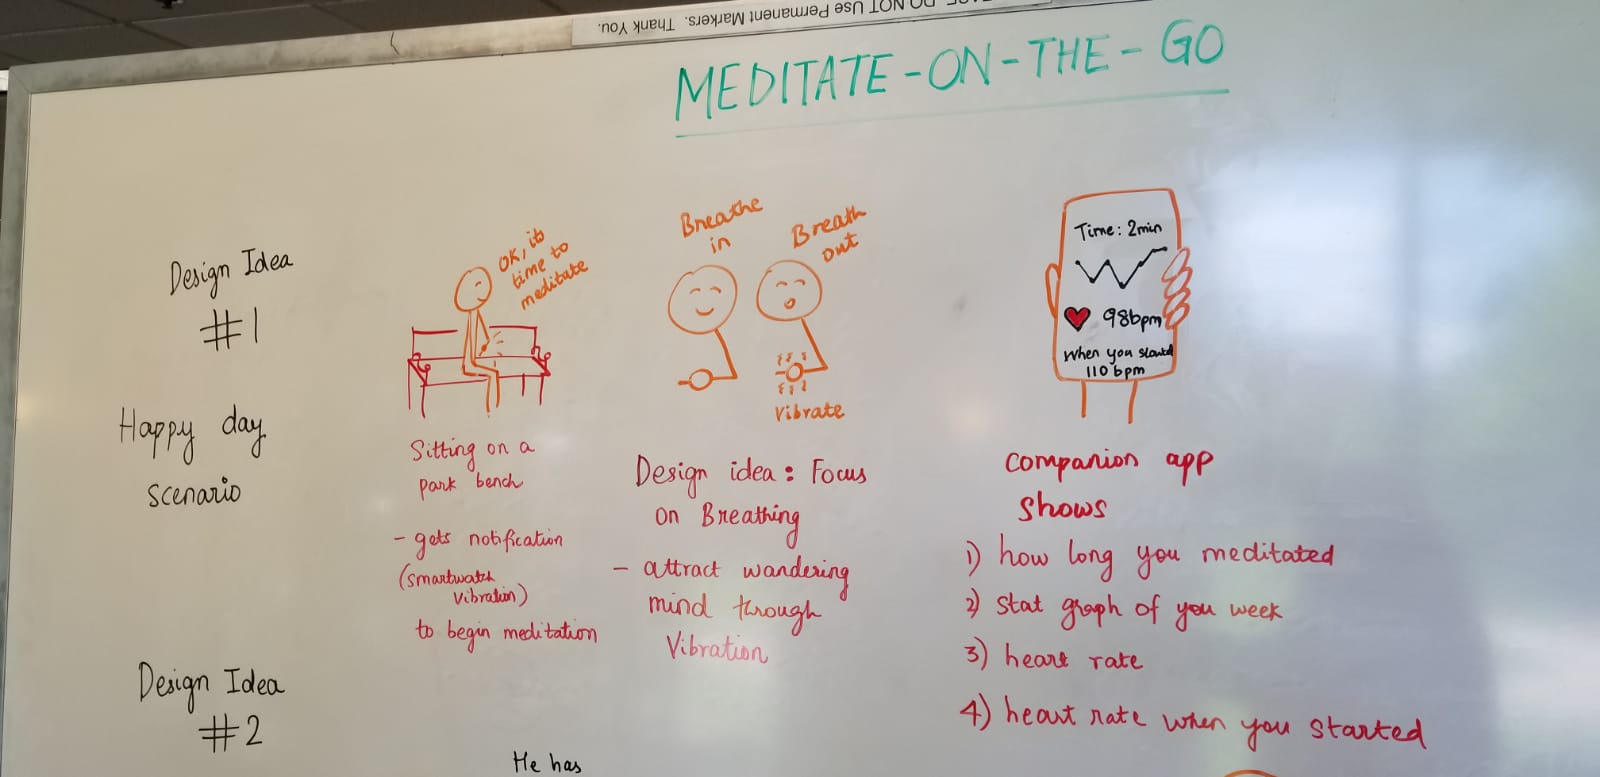 DO NOT Use Permanent Markers. Thank You.
MEDITATE-ON-THE-GO
Design Idea
#1
Happy day
scenario
OK, its
time to
meditate
Sitting on a
park bench
- gets notification
(smartwatch
vibration)
to begin meditation
Breathe
in
Breath
out
Vibrate
Design idea: Focus
on Breathing
- attract wandering
mind through
Vibration
Time: 2min
98bpm
When you started
110 bpm
companion app
shows
1) how long you meditated
2) stat graph of you week
3) heart rate
4) heart rate when you started
Design Idea
#2
He has